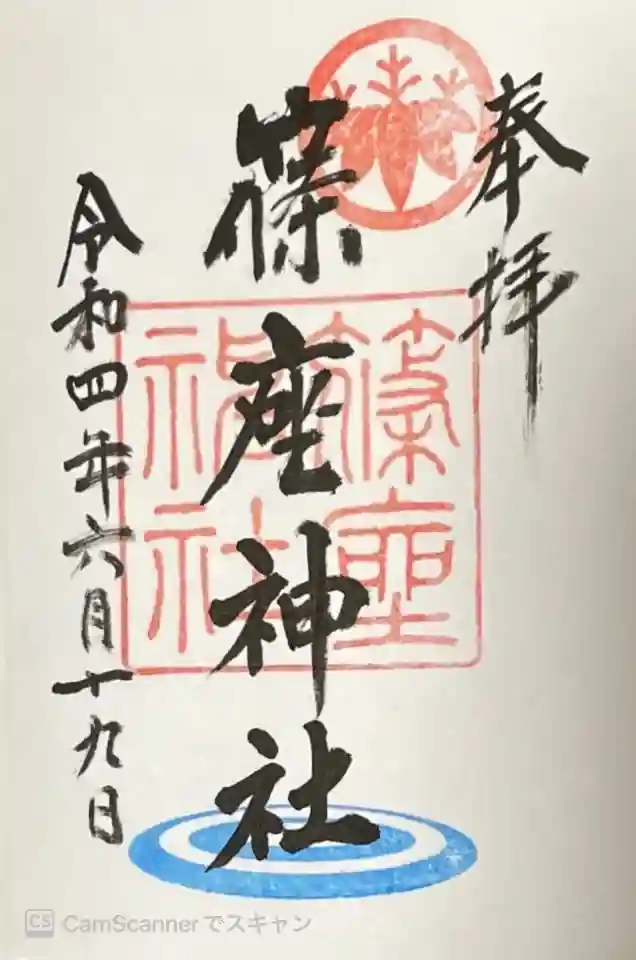 奉拝
篠座神社
令和四年六月十九日
篠座
神社
CS CamScannerでスキャン